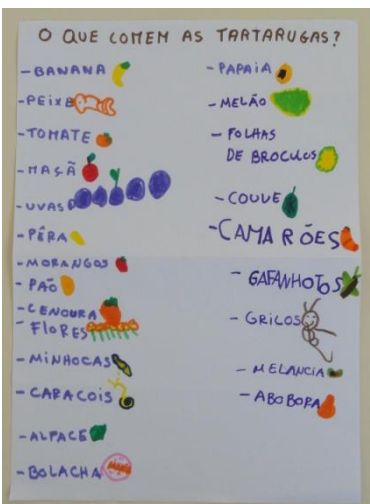 O QUE COMEM AS TARTARUGAS?
- BANANA
- PEIXE
- TOMATE
- MAÇÃ
- UVAS
- PÊRA
- MORANGOS
- PÃO
- CENOURA
- FLORES
- MINHOCAS
- CARACOIS
- ALPACE
- BOLACHA
- PAPAIA
- MELÃO
- FOLHAS
DE BROCULOS
- COUVE
- CAMARÕES
- GAFANHOTOS
- GRILOS
- MELANCIA
- ABOBORA